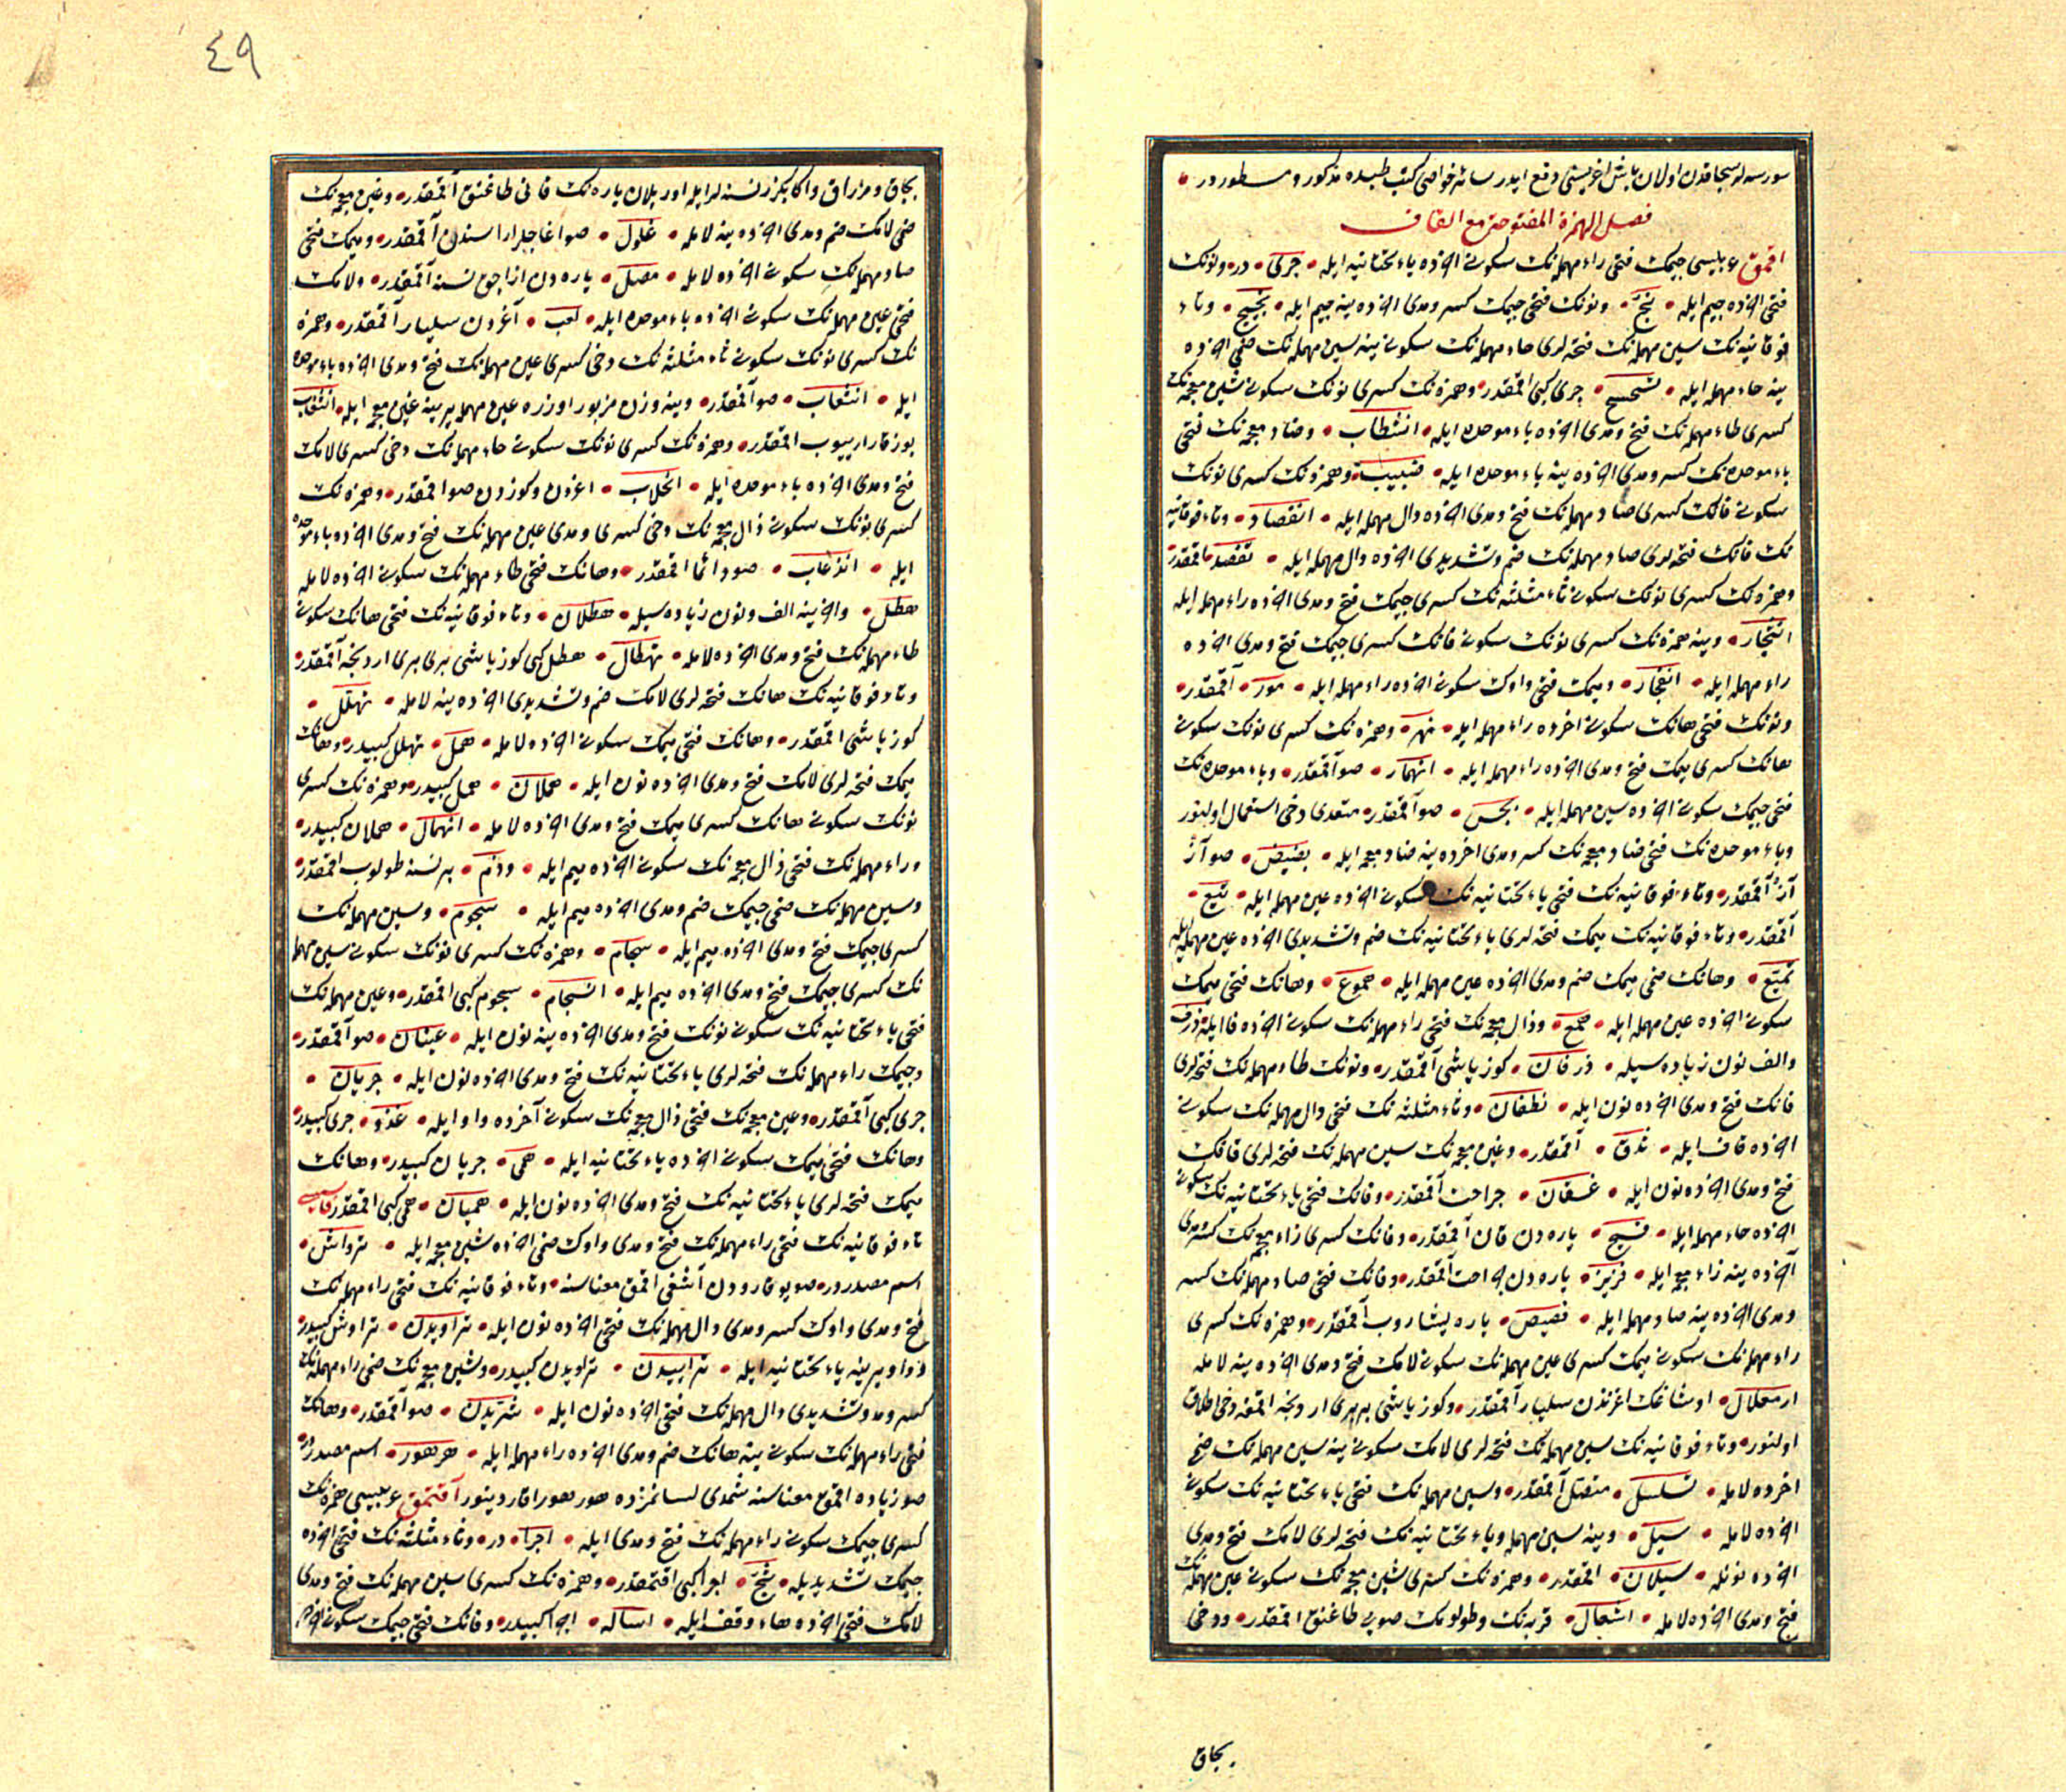 سورسه لر سیجاقدن اولان باش اغریسنی دفع ایدر سائر خواصی کتب طبیده مذکور و مسطوردر
فصل الهمزة المفتوحة مع القاف
اقمق عربیسی جیمک فتحی راء مهمله نک سکونی اخرده یاء تحتانیه ایله جری در ونونک
فتحی اخرده جیم ایله نج ونونک فتحی جیمک کسر ومدی اخرده ینه جیم ایله نجیج وتاء
فوقانیه نک سین مهمله نک فتحه لری حاء مهمله نک سکونی ینه سین مهمله نک ضمی اخرده
ینه حاء مهمله ایله تسحسح جری کبی اقمقدر وهمزه نک کسری نونک سکونی شین معجمه نک
کسری طاء مهمله نک فتح ومدی اخرده باء موحده ایله انشطاب وضاد معجمه نک فتحی
باء موحده نک کسر ومدی اخرده ینه باء موحده ایله ضبیب وهمزه نک کسری نونک
سکونی فانک کسری صاد مهمله نک فتح ومدی اخرده دال مهمله ایله انفصاد وتاء فوقانیه
نک فانک فتحه لری صاد مهمله نک ضم وتشدیدی اخرده دال مهمله ایله تفصد اقمقدر
وهمزه نک کسری نونک سکونی ثاء مثلثه نک کسری جیمک فتح ومدی اخرده راء مهمله ایله
انثجار وینه همزه نک کسری نونک سکونی فانک کسری جیمک فتح ومدی اخرده
راء مهمله ایله انفجار ومیمک فتحی واوک سکونی اخرده راء مهمله ایله مور اقمقدر
ونونک فتحی هانک سکونی اخرده راء مهمله ایله نهر وهمزه نک کسری نونک سکونی
هانک کسری میمک فتح ومدی اخرده راء مهمله ایله انهمار صو آقمقدر وباء موحده نک
فتحی جیمک سکونی اخرده سین مهمله ایله بجس صو آقمقدر متعدی دخی استعمال اولنور
وباء موحده نک فتحی ضاد معجمه نک کسر ومدی اخرده ینه ضاد معجمه ایله بضیض صو آز
آز آقمقدر وتاء فوقانیه نک فتحی یاء تحتانیه نک سکونی اخرده عین مهمله ایله تیع
آقمقدر وتاء فوقانیه نک میمک فتحه لری یاء تحتانیه نک ضم وتشدیدی اخرده عین مهمله ایله
تمیع وهانک ضمی میمک ضم ومدی اخرده عین مهمله ایله هموع وهانک فتحی میمک
سکونی اخرده عین مهمله ایله همع وذال معجمه نک فتحی راء مهمله نک سکونی اخرده فا ایله ذرف
والف نون زیاده سیله ذرفان کوز یاشی آقمقدر ونونک طاء مهمله نک فتحه لری
فانک فتح ومدی اخرده نون ایله نطفان وثاء مثلثه نک فتحی دال مهمله نک سکونی
اخرده قاف ایله ثدق آقمقدر وغین معجمه نک سین مهمله نک فتحه لری قافک
فتح ومدی اخرده نون ایله غسقان جراحت آقمقدر وفانک فتحی یاء تحتانیه نک سکونی
اخرده حاء مهمله ایله فیح یاره دن قان آقمقدر وفانک کسری زاء معجمه نک کسر ومدی
آخرده ینه زاء معجمه ایله فزیز یاره دن جراحت آقمقدر وفانک فتحی صاد مهمله نک کسر
ومدی اخرده ینه صاد مهمله ایله فصیص یاره یشاروب آقمقدر وهمزه نک کسری
راء مهمله نک سکونی میمک کسری عین مهمله نک سکونی لامک فتح ومدی اخرده ینه لامله
ارمعلال اوشاغک اغزندن سلیار آقمقدر وکوز یاشی بربری اردنجه اقمغه دخی اطلاق
اولنور وتاء فوقانیه نک سین مهمله نک فتحه لری لامک سکونی ینه سین مهمله نک ضمی
اخرده لامله تسلسل متصل آقمقدر وسین مهمله نک فتحی یاء تحتانیه نک سکونی
اخرده لامله سیل وینه سین مهمله ویاء تحتانیه نک فتحه لری لامک فتح ومدی
اخرده نونله سیلان اقمقدر وهمزه نک کسری شین معجمه نک سکونی عین مهمله نک
فتح ومدی اخرده لامله اشعال قربه نک وطولومک صویی طاغنق اقمقدر ودخی
بجاق
٤٩
بجاق ومزراق واکا بکزر نسنه لر ایله اوریلان یاره نک قانی طاغنق آقمقدر وغین معجمه نک
ضمی لامک ضم ومدی اخرده ینه لامله غلول صو اغاجلر اراسندن آقمقدر ومیمک فتحی
صاد مهمله نک سکونی اخرده لامله مصل یاره دن ازاجق نسنه آقمقدر ولامک
فتحی عین مهمله نک سکونی اخرده باء موحده ایله لعب آغزدن سلیار آقمقدر وهمزه
نک کسری نونک سکونی ثاء مثلثه نک دخی کسری عین مهمله نک فتح ومدی اخرده باء موحده
ایله انثعاب صو آقمقدر وینه وزن مزبور اوزره عین مهمله یرینه غین معجمه ایله انثغاب
بوزقار ارییوب اقمقدر وهمزه نک کسری نونک سکونی حاء مهمله نک دخی کسری لامک
فتح ومدی اخرده باء موحده ایله انحلاب اغزدن وکوزدن صو اقمقدر وهمزه نک
کسری نونک سکونی ذال معجمه نک دخی کسری ومدی عین مهمله نک فتح ومدی اخرده باء موحده
ایله انذعاب صو دائما اقمقدر وهانک فتحی طاء مهمله نک سکونی اخرده لامله
هطل واخرینه الف ونون زیاده سیله هطلان وتاء فوقانیه نک فتحی هانک سکونی
طاء مهمله نک فتح ومدی اخرده لامله تهطال هطل کبی کوز یاشی بری بری اردنجه آقمقدر
وتاء فوقانیه نک هانک فتحه لری لامک ضم وتشدیدی اخرده ینه لامله تهلل
کوز یاشی اقمقدر وهانک فتحی میمک سکونی اخرده لامله همل تهلل کبیدر وهانک
میمک فتحه لری لامک فتح ومدی اخرده نون ایله هملان همل کبیدر وهمزه نک کسری
نونک سکونی هانک کسری میمک فتح ومدی اخرده لامله انهمال هملان کبیدر
وراء مهمله نک فتحی ذال معجمه نک سکونی اخرده میم ایله وذم بر نسنه طولوب اقمقدر
وسین مهمله نک ضمی جیمک ضم ومدی اخرده میم ایله سجوم وسین مهمله نک
کسری جیمک فتح ومدی اخرده میم ایله سجام وهمزه نک کسری نونک سکونی سین مهمله
نک کسری جیمک فتح ومدی اخرده میم ایله انسجام سجوم کبی اقمقدر وعین مهمله نک
فتحی یاء تحتانیه نک سکونی نونک فتح ومدی اخرده ینه نون ایله عینان صو آقمقدر
وجیمک راء مهمله نک فتحه لری یاء تحتانیه نک فتح ومدی اخرده نون ایله جریان
جری کبی آقمقدر وغین معجمه نک فتحی ذال معجمه نک سکونی آخرده واو ایله غذو جری کبیدر
وهانک فتحی میمک سکونی اخرده یاء تحتانیه ایله همی جریان کبیدر وهانک
میمک فتحه لری یاء تحتانیه نک فتح ومدی اخرده نون ایله همیان همی کبی اقمقدر فارسیسی
تاء فوقانیه نک فتحی راء مهمله نک فتح ومدی واوک ضمی اخرده شین معجمه ایله تراوش
اسم مصدردر صو یوقارودن آشغی اقمق معناسنه وتاء فوقانیه نک فتحی راء مهمله نک
فتح ومدی واوک کسر ومدی دال مهمله نک فتحی اخرده نون ایله تراویدن تراوش کبیدر
وواو یرینه یاء تحتانیه ایله تراییدن تراویدن کبیدر وشین معجمه نک ضمی راء مهمله نک
کسر ومد وتشدیدی دال مهمله نک فتحی اخرده نون ایله شریدن صو آقمقدر وهانک
فتحی راء مهمله نک سکونی ینه هانک ضم ومدی اخرده راء مهمله ایله هرهور اسم مصدردر
صو زیاده اقمق معناسنه شمدی لسانمزده هور هور اقار دینور آقتمق عربیسی همزه نک
کسری جیمک سکونی راء مهمله نک فتح ومدی ایله اجرا در وثاء مثلثه نک فتحی اخرده
جیمک تشدیدیله ثج اجرا کبی اقتمقدر وهمزه نک کسری سین مهمله نک فتح ومدی
لامک فتحی اخرده هاء وقف ایله اساله اجرا کبیدر وفانک فتحی جیمک سکونی اخرده